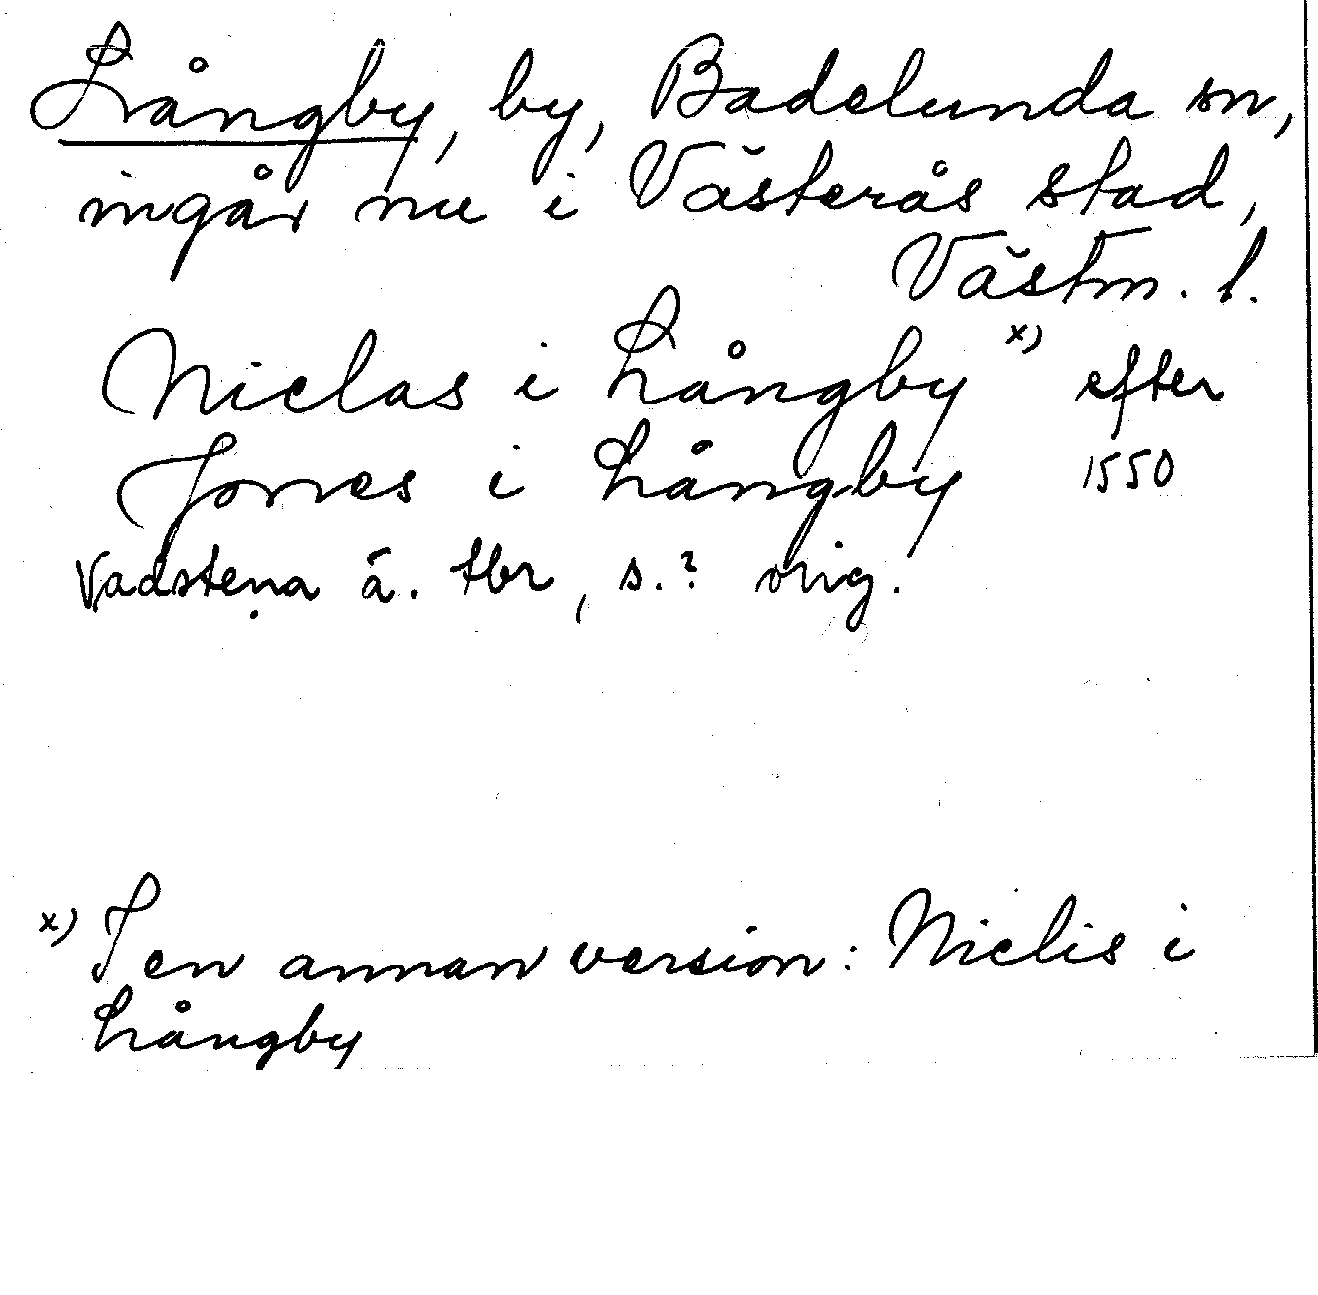 Långby, by, Badelunda sn,
ingår nu i Västerås stad,
Västm. l.
Niclas i Långby x) efter
Jones i Långby 1550
Vadstena ä. tbr, s.? orig.
x) I en annan version: Niclis i
Långby